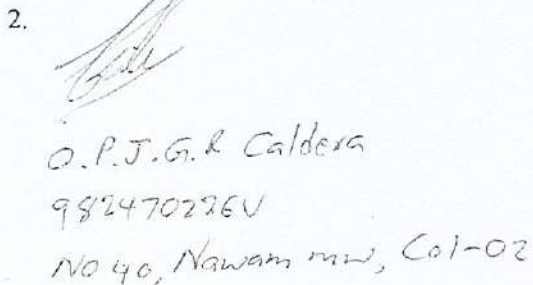 2.
O.P.J.G.R Caldera
982470226V
No 40, Nawam mw, Col-02